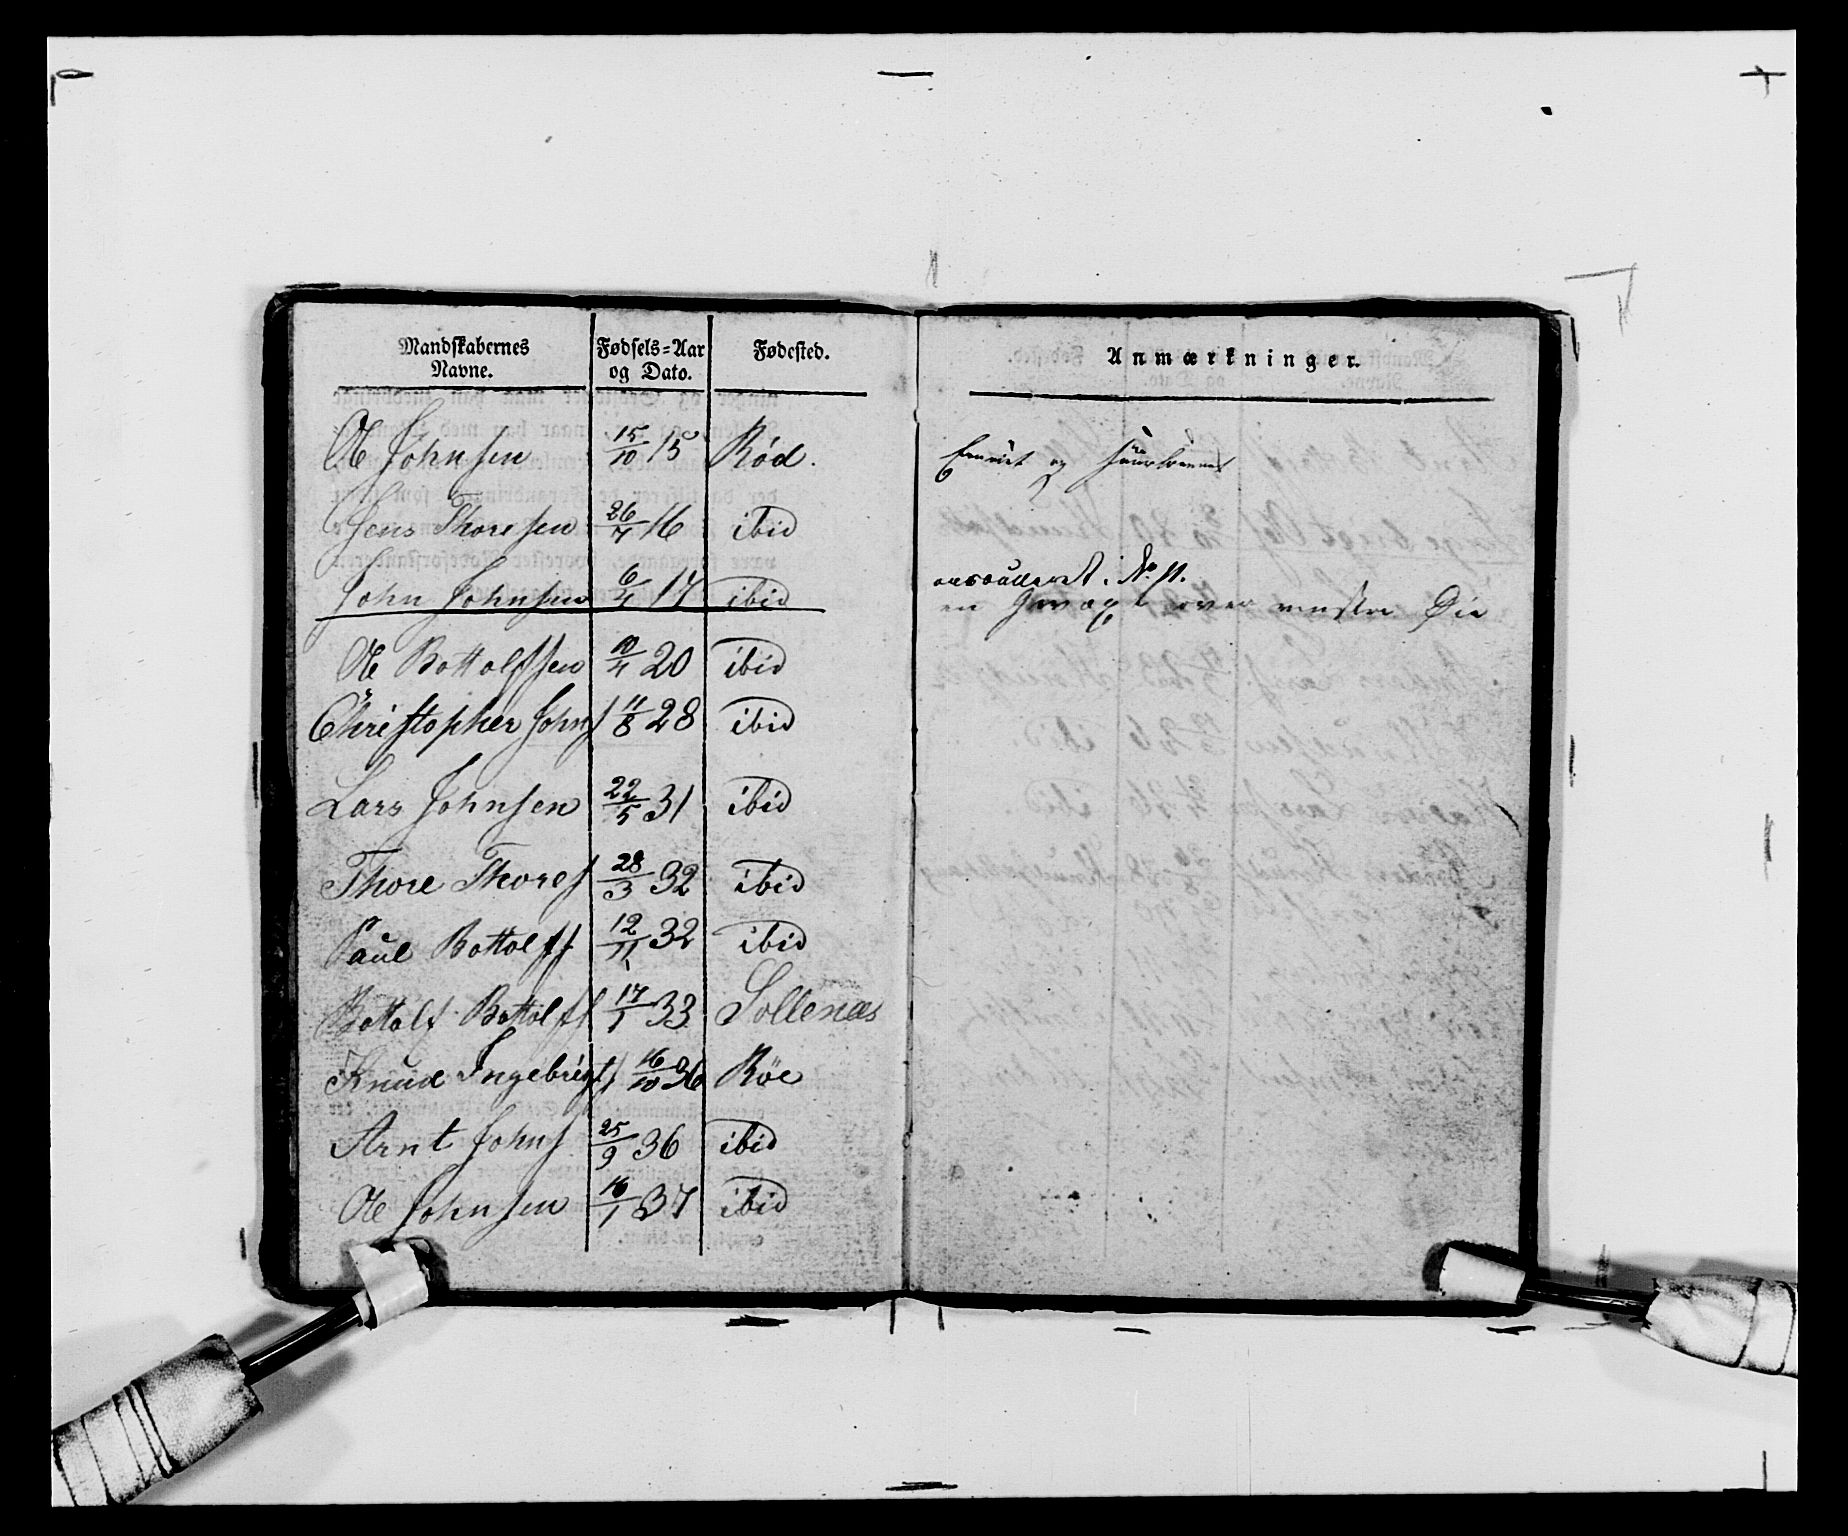 Mandskabernes Navne. Fødsels=Aar og Dato. Fødested. Anmærkninger.
Ole Johnsen 15/10 15 Rød. og
Jens Thoresen 26/7 16 ibid
John Johnsen 6/4 17 ibid No 11.
en Gevæxt over venstre Øie
Ole Bottolfsen 10/4 20 ibid
Christopher Johns 11/8 28 ibid
Lars Johnsen 22/5 31 ibid
Thore Thores 28/3 32 ibid
Paul Bottolfs 12/11 32 ibid
Bottolf Bottolfs 17/1 33 Sollenæs
Knud Ingebrigts 16/10 36 Röe
Arnt Johns 25/9 36 ibid
Ole Johnsen 16/1 37 ibid